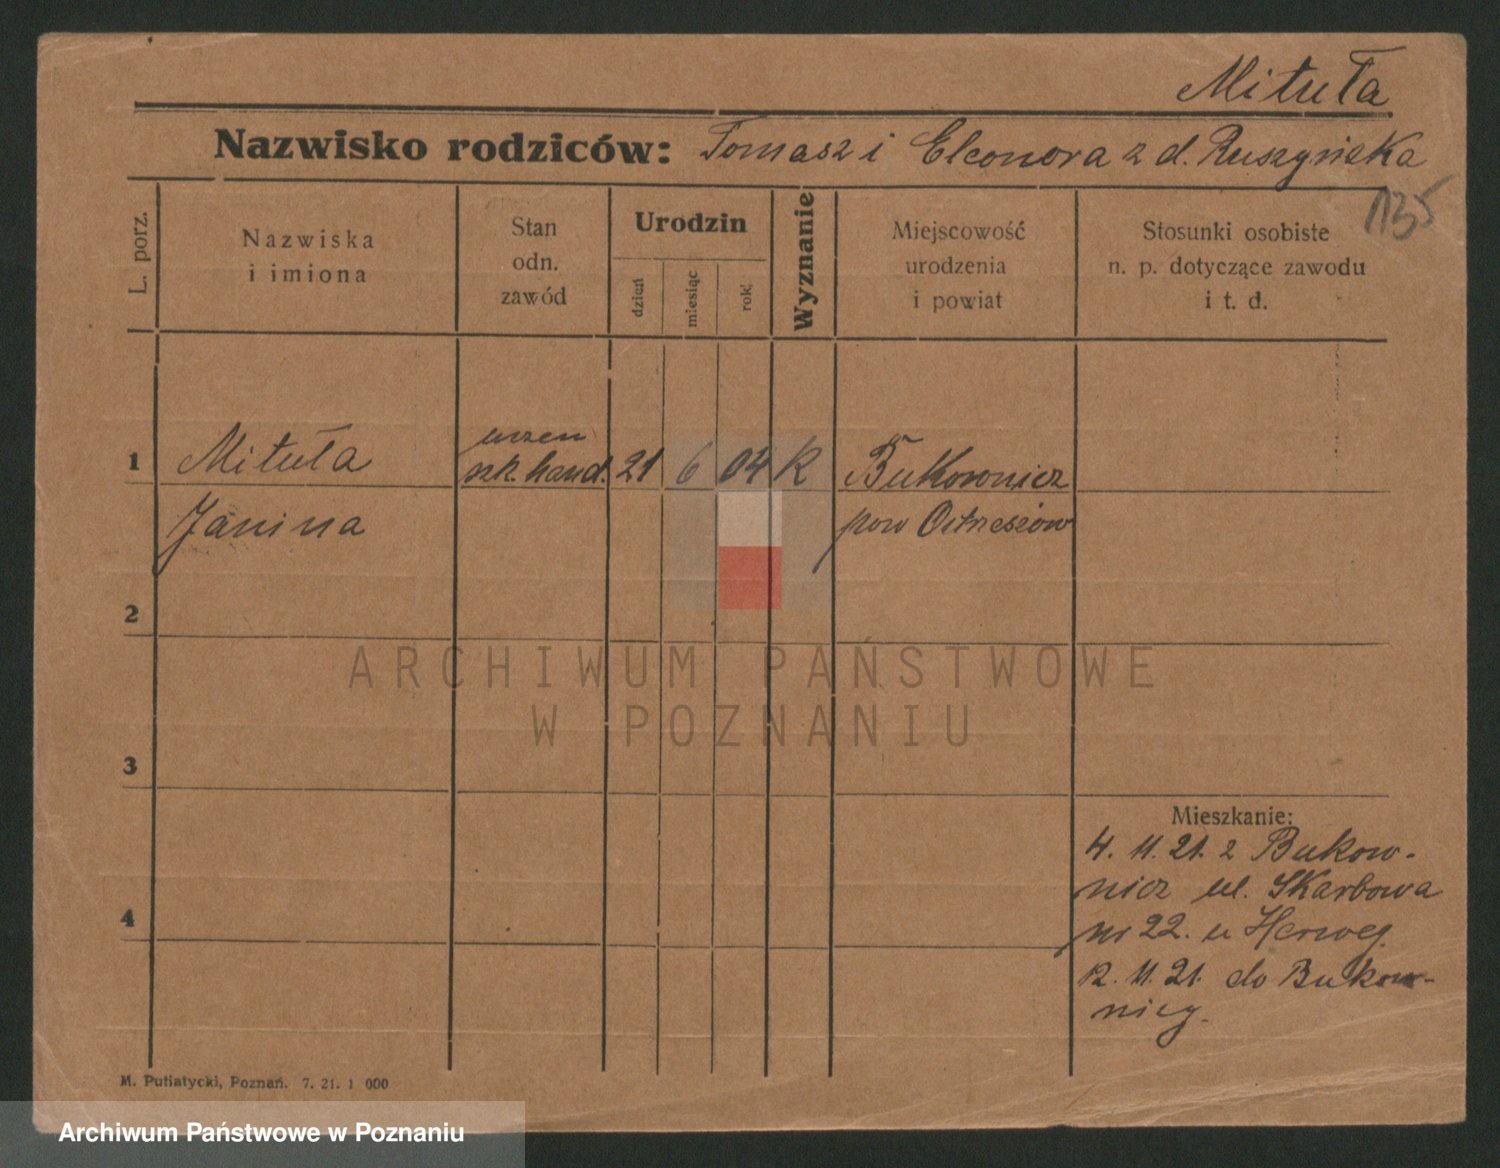 Mituła
Nazwisko rodziców: Tomasz i Eleonora z d. Ruszyńska
135
L. porz.
Nazwiska
i imiona
Stan
odn.
zawód
Urodzin
dzień
miesiąc
rok
Wyznanie
Miejscowość
urodzenia
i powiat
Stosunki osobiste
n. p. dotyczące zawodu
i t. d.
1
Mituła
uczen
szk. hand.
21 6 04 K
Bukownicz
Janina
pow Ostrzeszów
2
ARCHIWUM PAŃSTWOWE
W POZNANIU
3
Mieszkanie:
4. 11. 21. z Bukow-
nicz ul. Skarbowa
4
nr 22. u Herweg.
12. 11. 21. do Bukow-
nicy.
M. Putiatycki, Poznań. 7. 21. 1 000
Archiwum Państwowe w Poznaniu